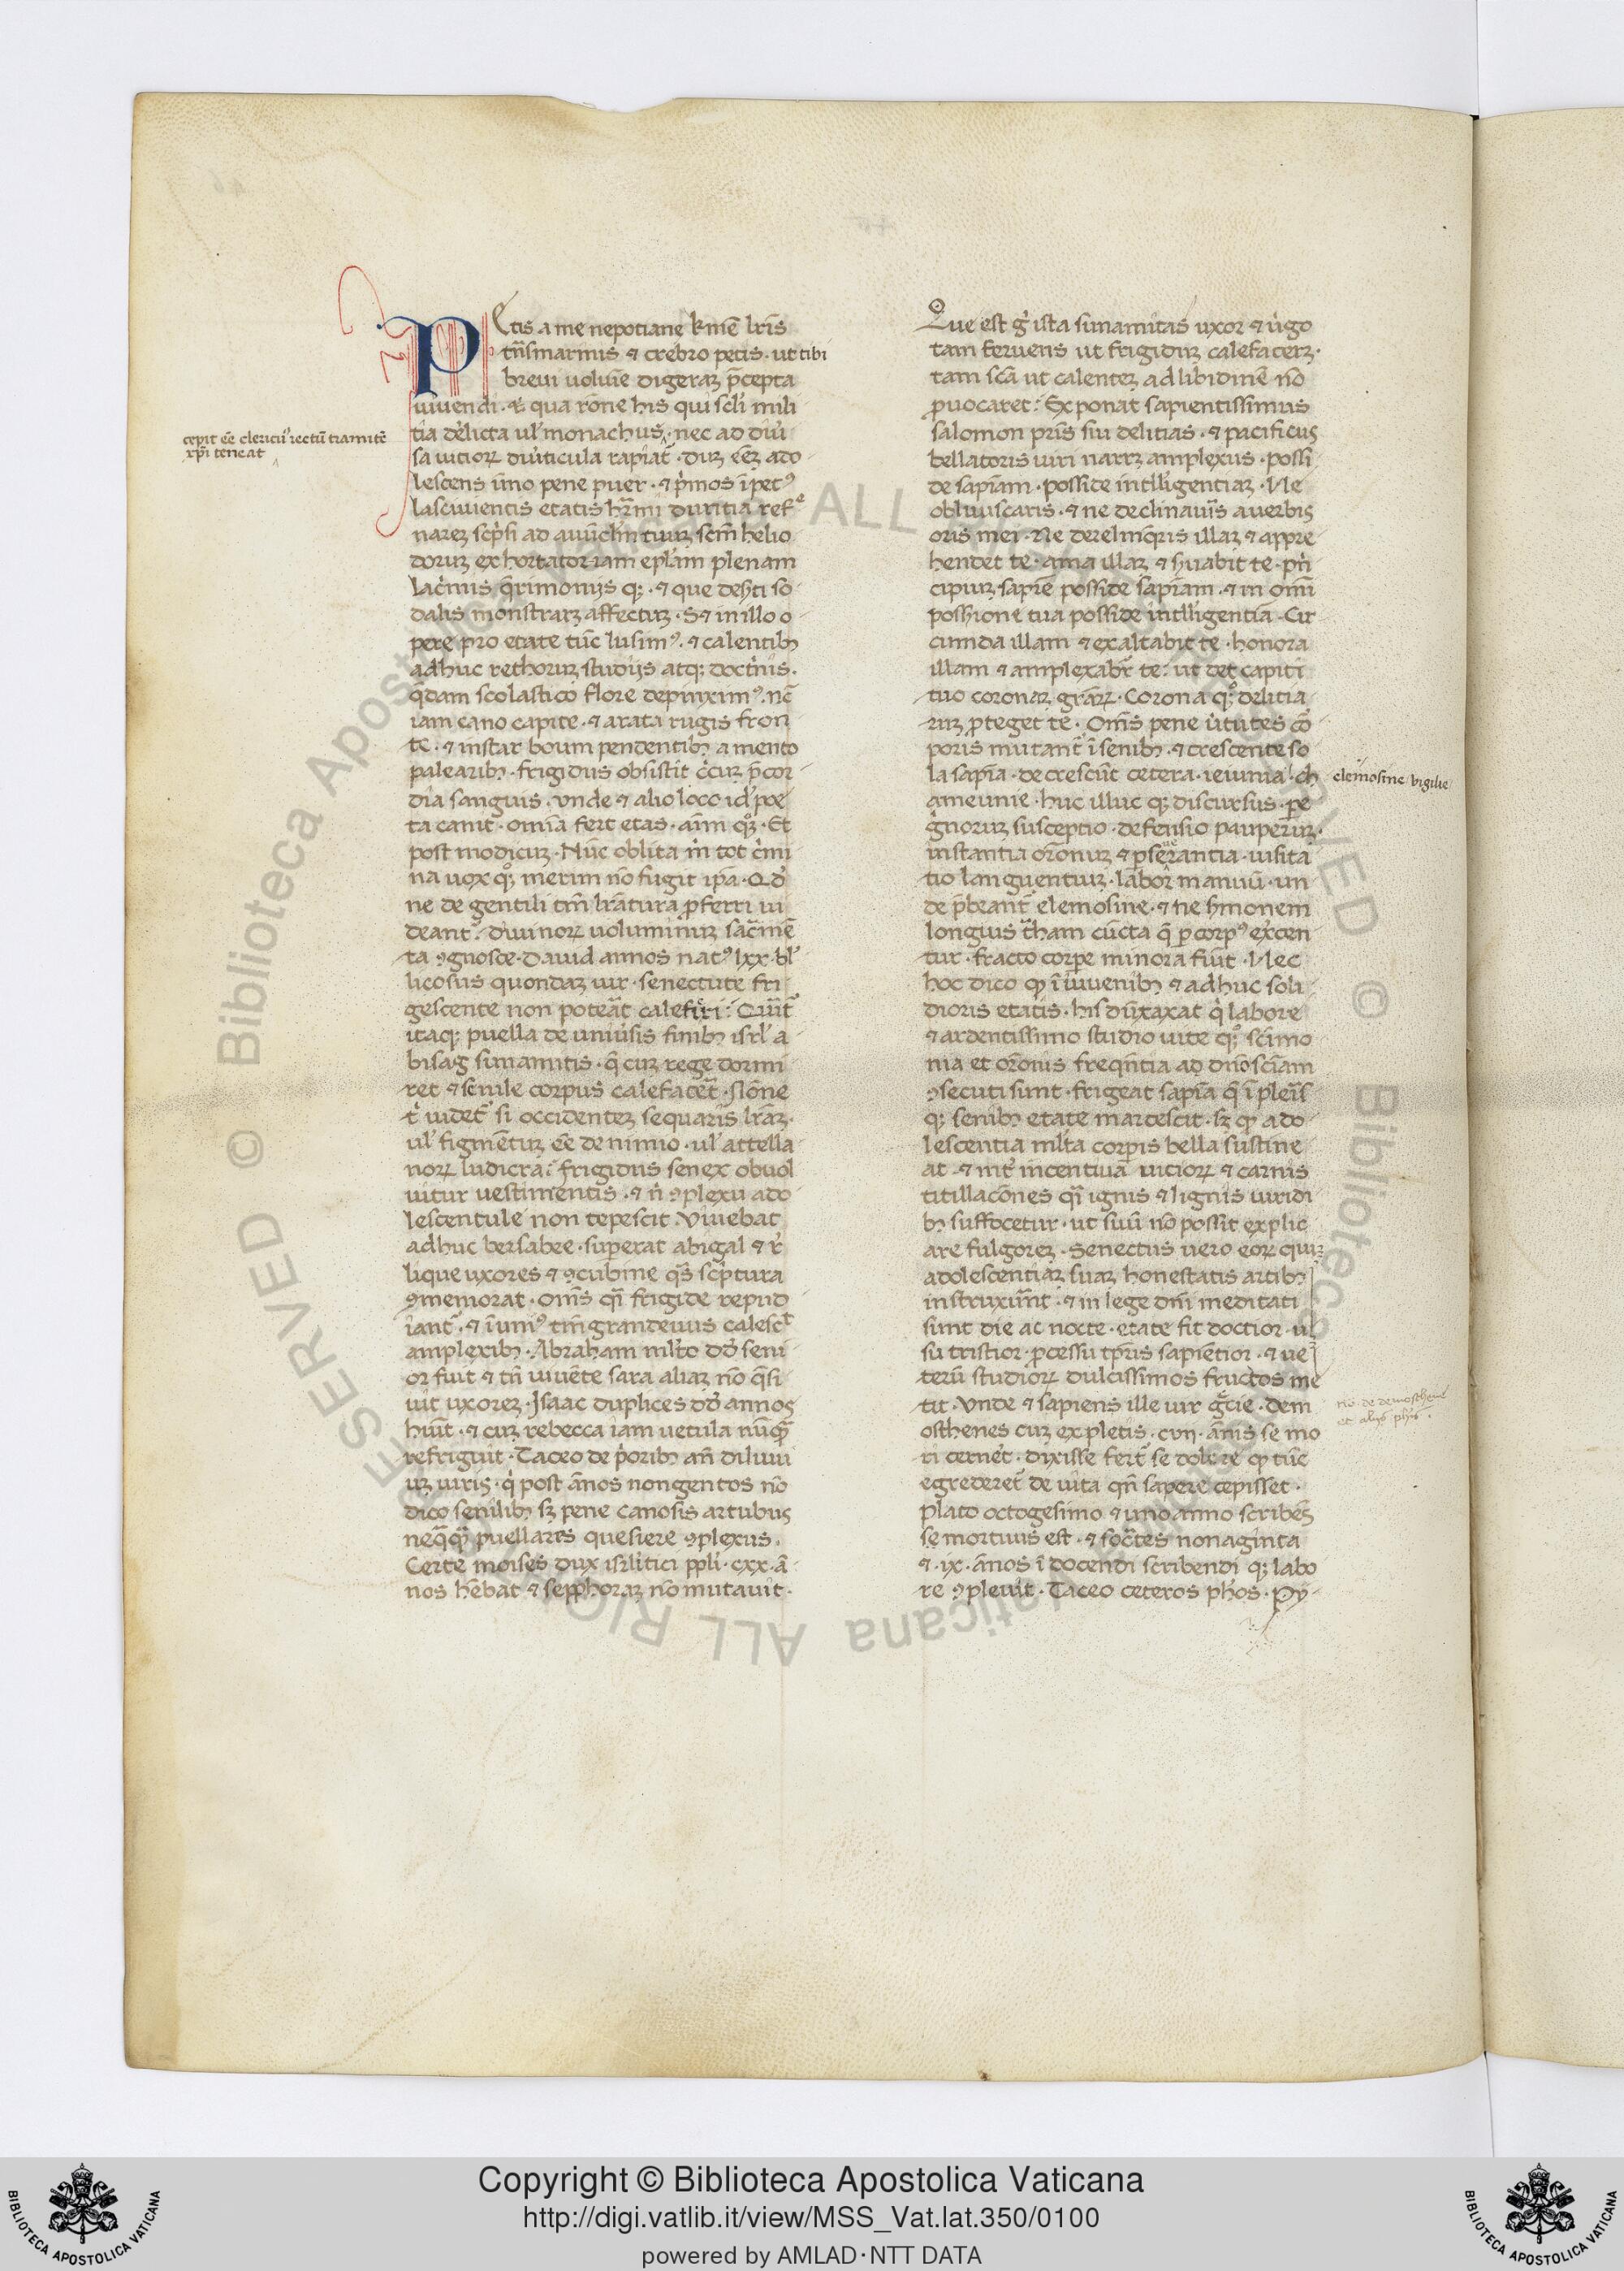 Petis a me nepotiane kme lris
tnsmarinis ⁊ crebro petis · ut tibi
breui uolume digeraz pcepta
uiuendi · et qua rone his qui scli mili
tia delicta ul monachus · nec ad diu
sa uitioꝝ diuticula rapiat · duz eez ado
lescens imo pene puer · ⁊ pmos ipetꝰ
lasciuientis etatis hremi duritia ref
narez scpsi ad auuclm tuuz scm helio
doruz exhortatoriam eplam plenam
lacimis qrimonijs qꝫ · ⁊ que desti so
dalis monstraz affectuz · Sꝫ in illo o
pere pro etate tuc lusimꝰ · ⁊ calentibꝫ
adhuc rethoruz studijs atqꝫ doctinis ·
qdam scolastico flore depinximꝰ · nc
iam cano capite · ⁊ arata rugis fron
te · ⁊ instar boum pendentibꝫ a mento
palearibꝫ · frigidus obsistit circuz pcor
dia sanguis · vnde ⁊ alio loco id poe
ta canit · omia fert etas · aim qꝫ · Et
post modicuz · Nuc oblita m tot cmi
na uox qꝫ merim no fugit ipa · Qd
ne de gentili tm lratura pferri ui
deant · diuinoꝝ uoluminuz sacme
ta ꝯgnosce · Dauid annos natꝰ lxx · bl
licosus quondaz uir · senectute fri
gescente non poteat calefiri : Quit
itaqꝫ puella de uniusis finibꝫ isrl a
bisag sunamitis · q cuz rege dormi
ret ⁊ senile corpus calefacet · None
t uidet si occidentez sequaris lraz ·
ul figmetuz ee de nimio · ul attella
noꝝ ludicra : frigidus senex obuol
uitur uestimentis · ⁊ n ꝯplexu ado
lescentule non tepescit · Viuebat
adhuc bersabee · superat abigal ⁊ r
lique uxores ⁊ ꝯcubine qs scptura
ꝯmemorat · Oms qi frigide repud
iant · ⁊ i uniꝰ tm grandeuus calesct
amplexibꝫ · Abraham mlto dd seni
or fuit ⁊ tn uiuete sara aliaz no qsi
uit uxorez · Isaac duplices dd annos
huit · ⁊ cuz rebecca iam uetula nuqꝫ
refriguit · Taceo de poribꝫ an diluui
uz uiris · q post anos nongentos no
dico senilibꝫ sꝫ pene canosis artubus
neqqꝫ puellares quesiere ꝯplexus ·
Certe moises dux isrlitici ppli · cxx · a
nos hebat ⁊ sepphoraz no mutauit ·
cepit ee clericu iectu tramite
xpi teneat
Que est g ista sunamitas uxor ⁊ uigo
tam feruens ut frigiduz calefacerꝫ ·
tam sca ut calentez ad libidine no
puocaret : Exponat sapientissimus
salomon pris sui delitias · ⁊ pacificus
bellatoris uiri narrꝫ amplexus · possi
de sapiam · posside intlligentiaz · Ne
obliuiscaris · ⁊ ne declinauis a uerbis
oris mei · Ne derelinqris illaz ⁊ appre
hendet te · ama illaz ⁊ suabit te · pn
cipiuz sapie posside sapiam · ⁊ in omi
possione tua posside intlligentia · Cir
cunda illam ⁊ exaltabit te · honora
illam ⁊ amplexabr te : ut det capiti
tuo coronaz graꝝ · Corona qꝫ delitia
ruz pteget te · Oms pene uitutes co
poris mutant i senibꝫ · ⁊ crescente so
la sapia · decrescut cetera · ieiunia ch
ameunie · huc illuc qꝫ discursus · pe
ginoruz susceptio · defensio pauperuz ·
instantia oronuz ⁊ pseuerantia · uisita
tio languentuiz · labor manuu · un
de pbeant elemosine · ⁊ ne smonem
longius traham cucta q p corpꝰ excen
tur · fracto corpe minora fiut · Nec
hoc dico qꝫ i iuuenibꝫ ⁊ adhuc soli
dioris etatis · his dutaxat q labore
⁊ ardentissimo studio uite qꝫ scimo
nia et oronis freqntia ad dno sciam
ꝯsecuti sunt · frigeat sapia q i pleis
qꝫ senibꝫ etate marcescit · sꝫ qꝫ ado
lescentia mlta corpis bella sustine
at · ⁊ int incentiua uitioꝝ ⁊ carnis
titillacones qi ignis ⁊ lignis uiridi
bꝫ suffocetur · ut suu no possit explic
are fulgorez · Senectus uero eoꝝ qui
adolescentiaz suaz honestatis artibꝫ
instruxiunt · ⁊ in lege dni meditati
sunt die ac nocte · etate fit doctior · u
su tristior · pcessu tpris sapietior · ⁊ ue
teru studioꝝ dulcissimos fructos me
tit · Vnde ⁊ sapiens ille uir gcie · dem
osthenes cuz expletis · cvii · anis se mo
ri cernet · dixisse fert se dolere qꝫ tuc
egrederet de uita qn sapere cepisset ·
Plato octogesimo ⁊ uno anno scribes
se mortuus est · ⁊ socates nonaginta
⁊ · ix · anos i docendi scribendi qꝫ labo
re ꝯpleuit · Taceo ceteros phos · Py-
elemosine vigilie
no de demosthene
et alijs phis ·
Copyright © Biblioteca Apostolica Vaticana
http://digi.vatlib.it/view/MSS_Vat.lat.350/0100
powered by AMLAD·NTT DATA
BIBLIOTECA APOSTOLICA VATICANA
BIBLIOTECA APOSTOLICA VATICANA